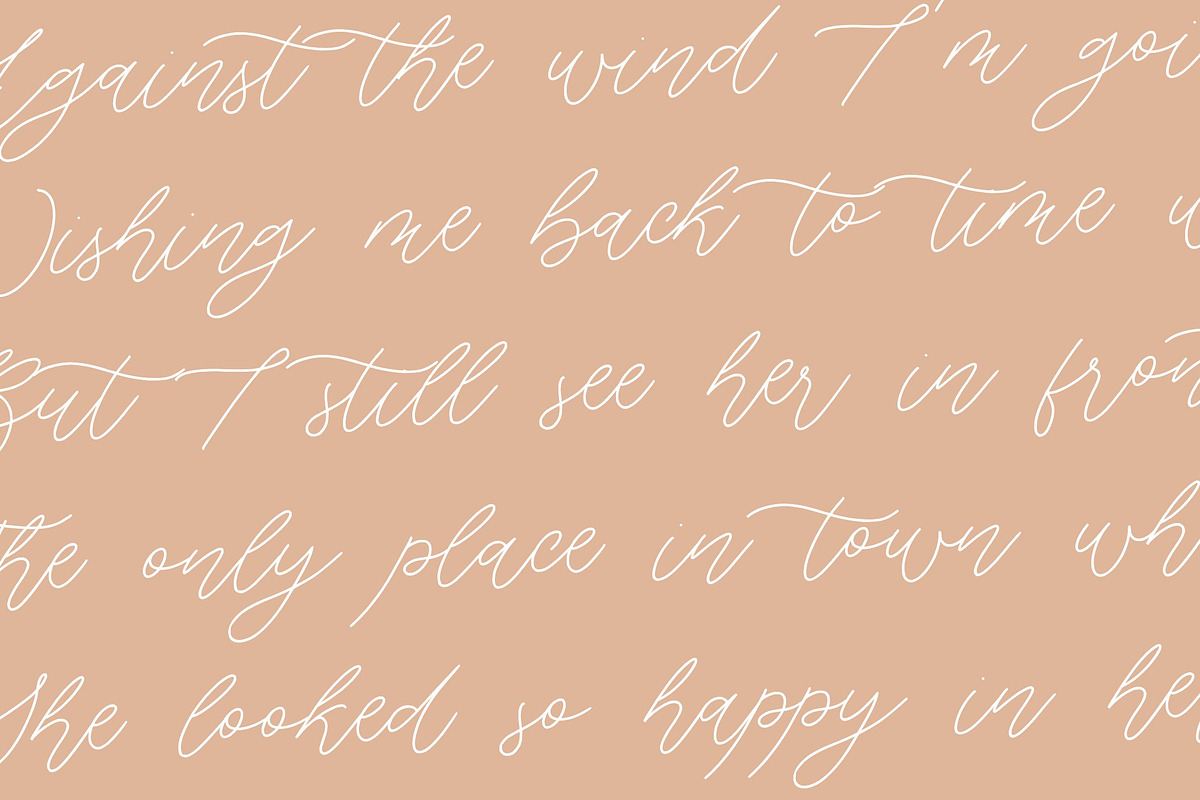 Against the wind I'm goi
Wishing me back to time w
But I still see her in fron
the only place in town wh
She looked so happy in he